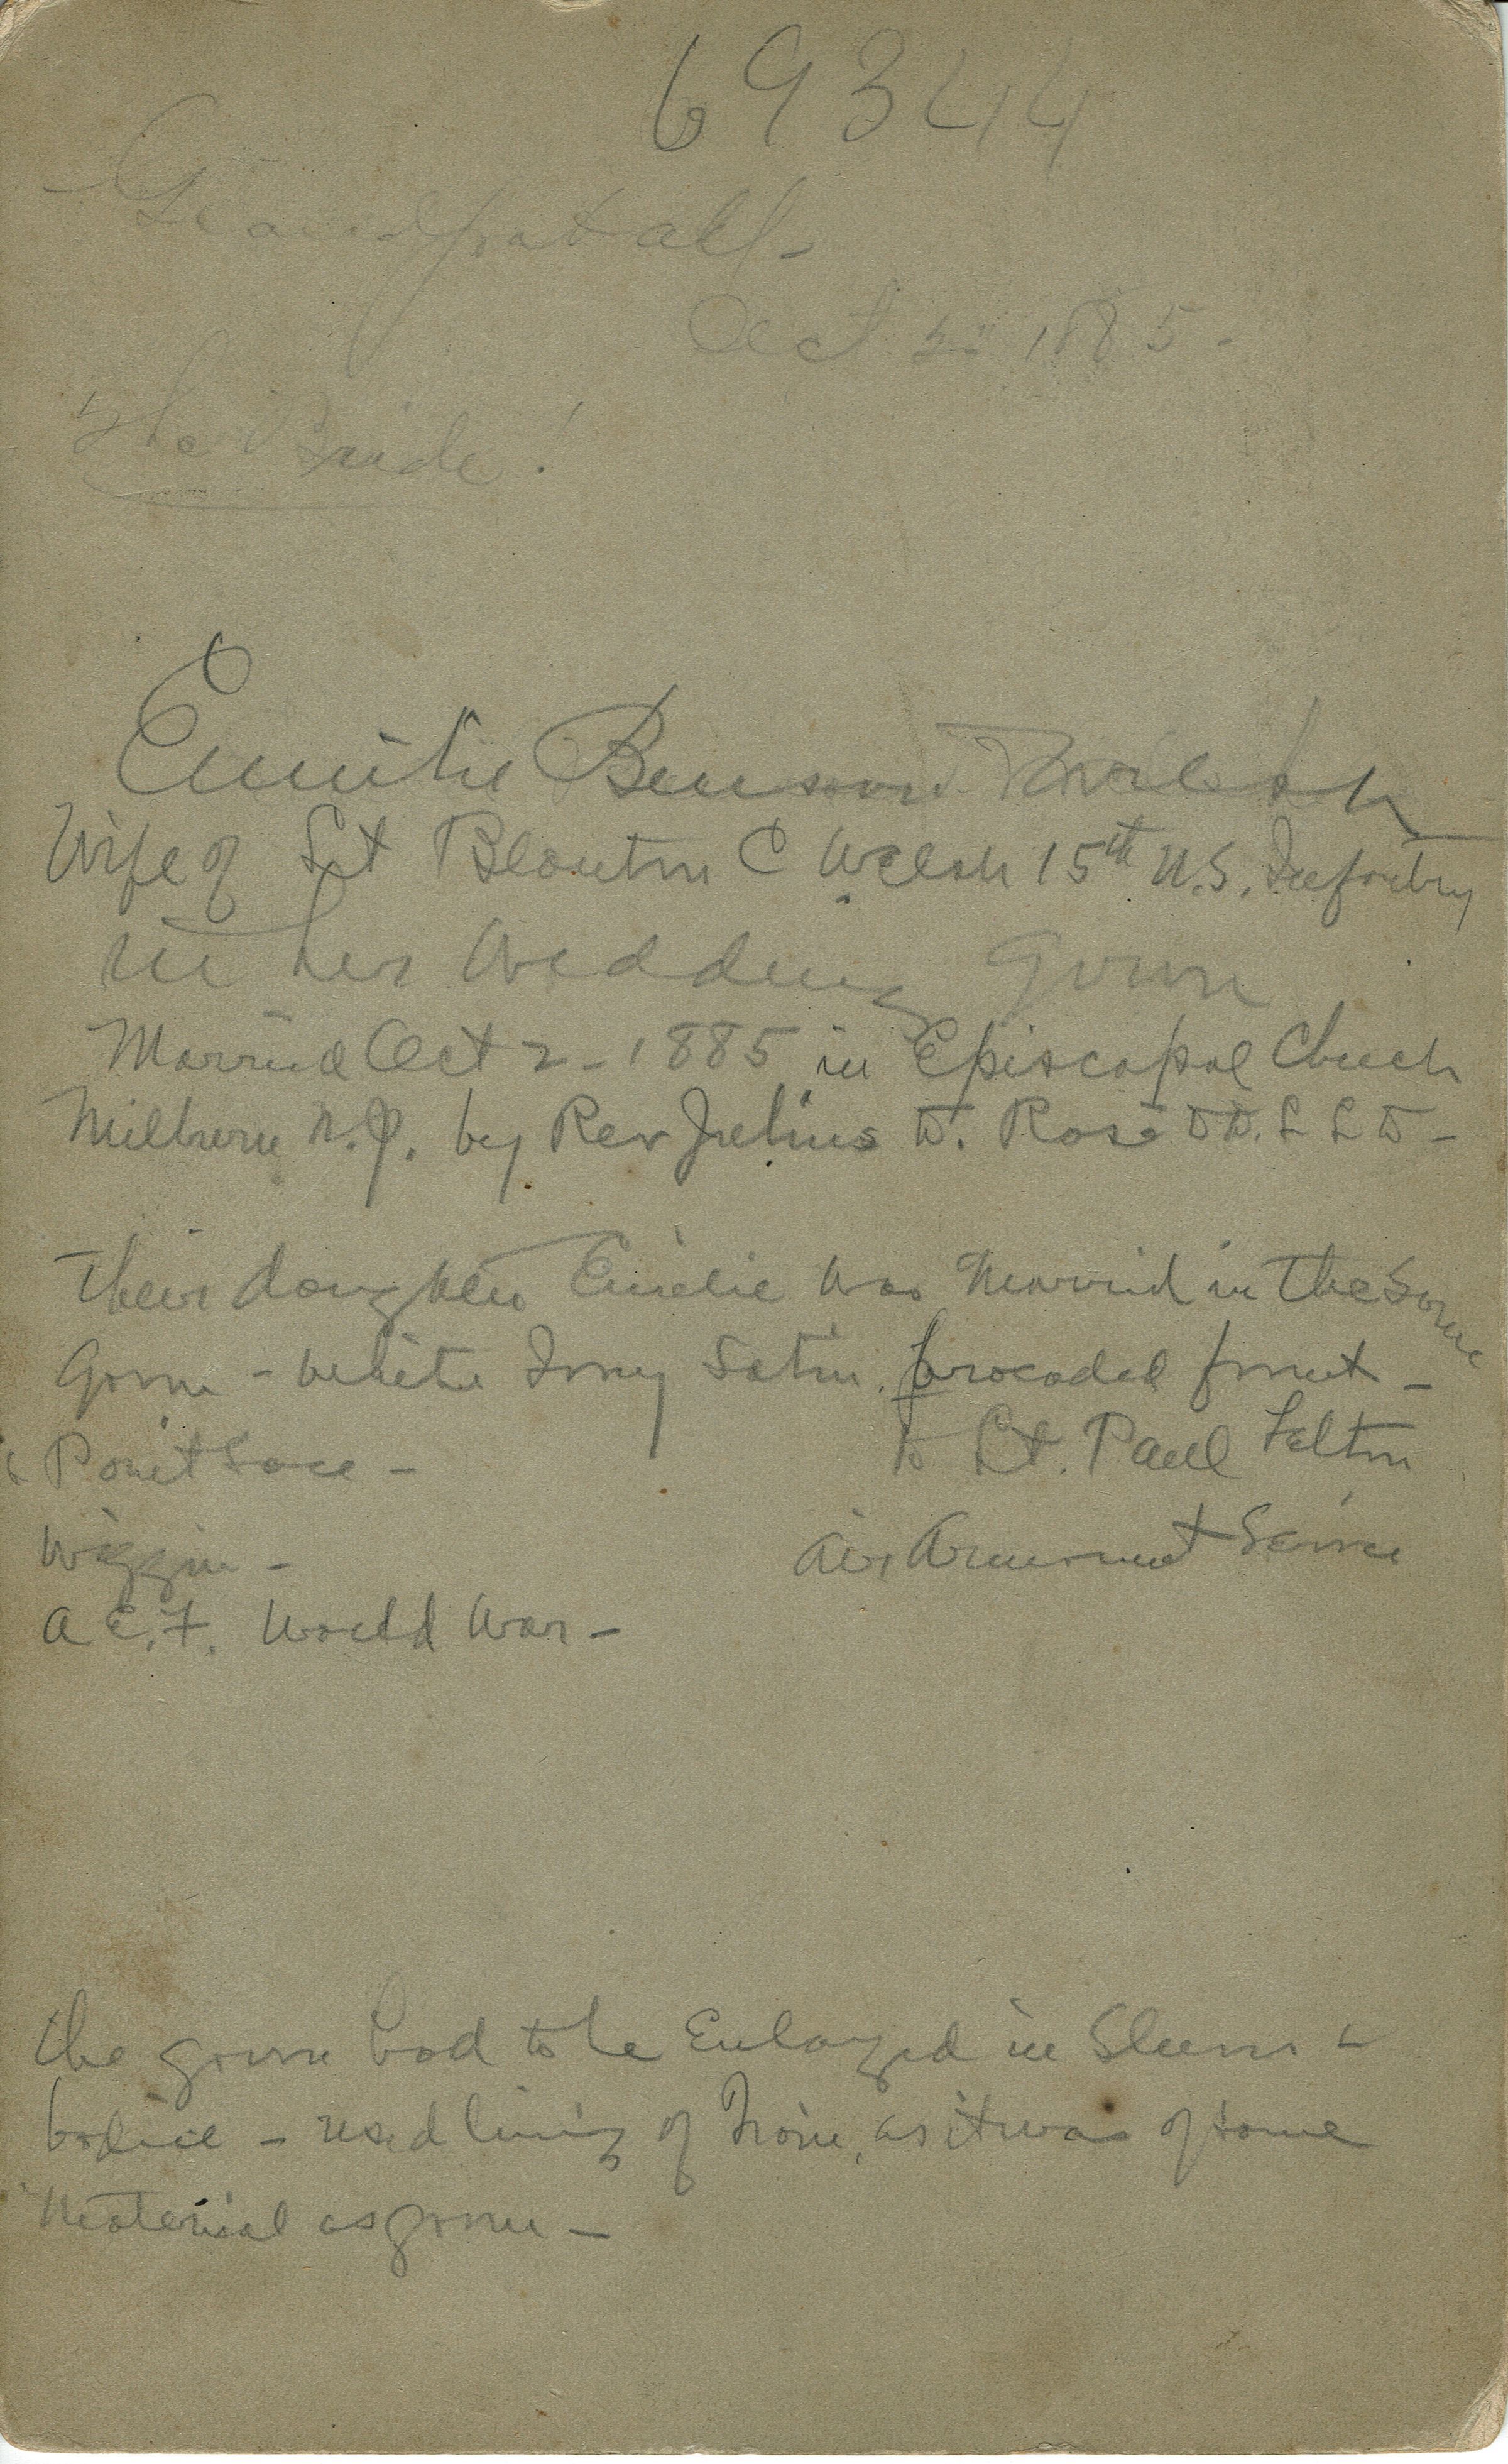 69344
Oct 2" 1885.
The Bride!
Emilie Benson Welsh
Wife of Lt Blanton C Welsh 15th U.S. Infantry
in her Wedding Gown
Married Oct 2 - 1885 in Episcopal Church
Milburn N.J. by Rev Julius D. Rose D D. L L D -
Their daughter Emilie was Married in the same
Gown - white Ivory Satin, brocaded front -
& Point Lace - to Lt. Paul Felton
Wiggin - Air Armament Service
A.E.F. World War -
the gown had to be Enlarged in Sleeves &
bodice - used lining of Train, as it was of same
Material as gown -